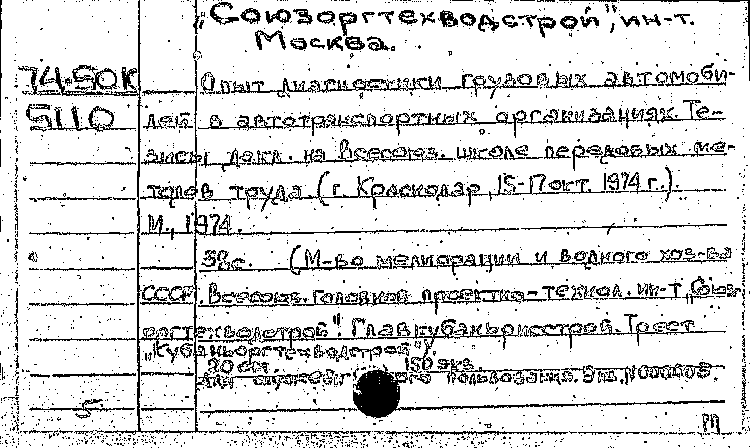 „Союзоргтехводстрой", ин-т.
Москва.
74-50К Опыт диагностики грузовых автомоби-
5110 лей в автотранспортных организациях. Те-
зисы докл. на Всесоюз. школе передовых ме-
тодов труда. (г. Краснодар, 15-17 окт. 1974 г.).
М., 1974.
38с. (М-во мелиорации и водного хоз-ва
СССР. Всесоюз. головной проектно-технол. ин-т „Союз-
оргтехводстрой". Главкубаньрисстрой. Трест
„Кубаньоргтехводстрой")
20 см. 150 экз.
Для пользования.
5
РП